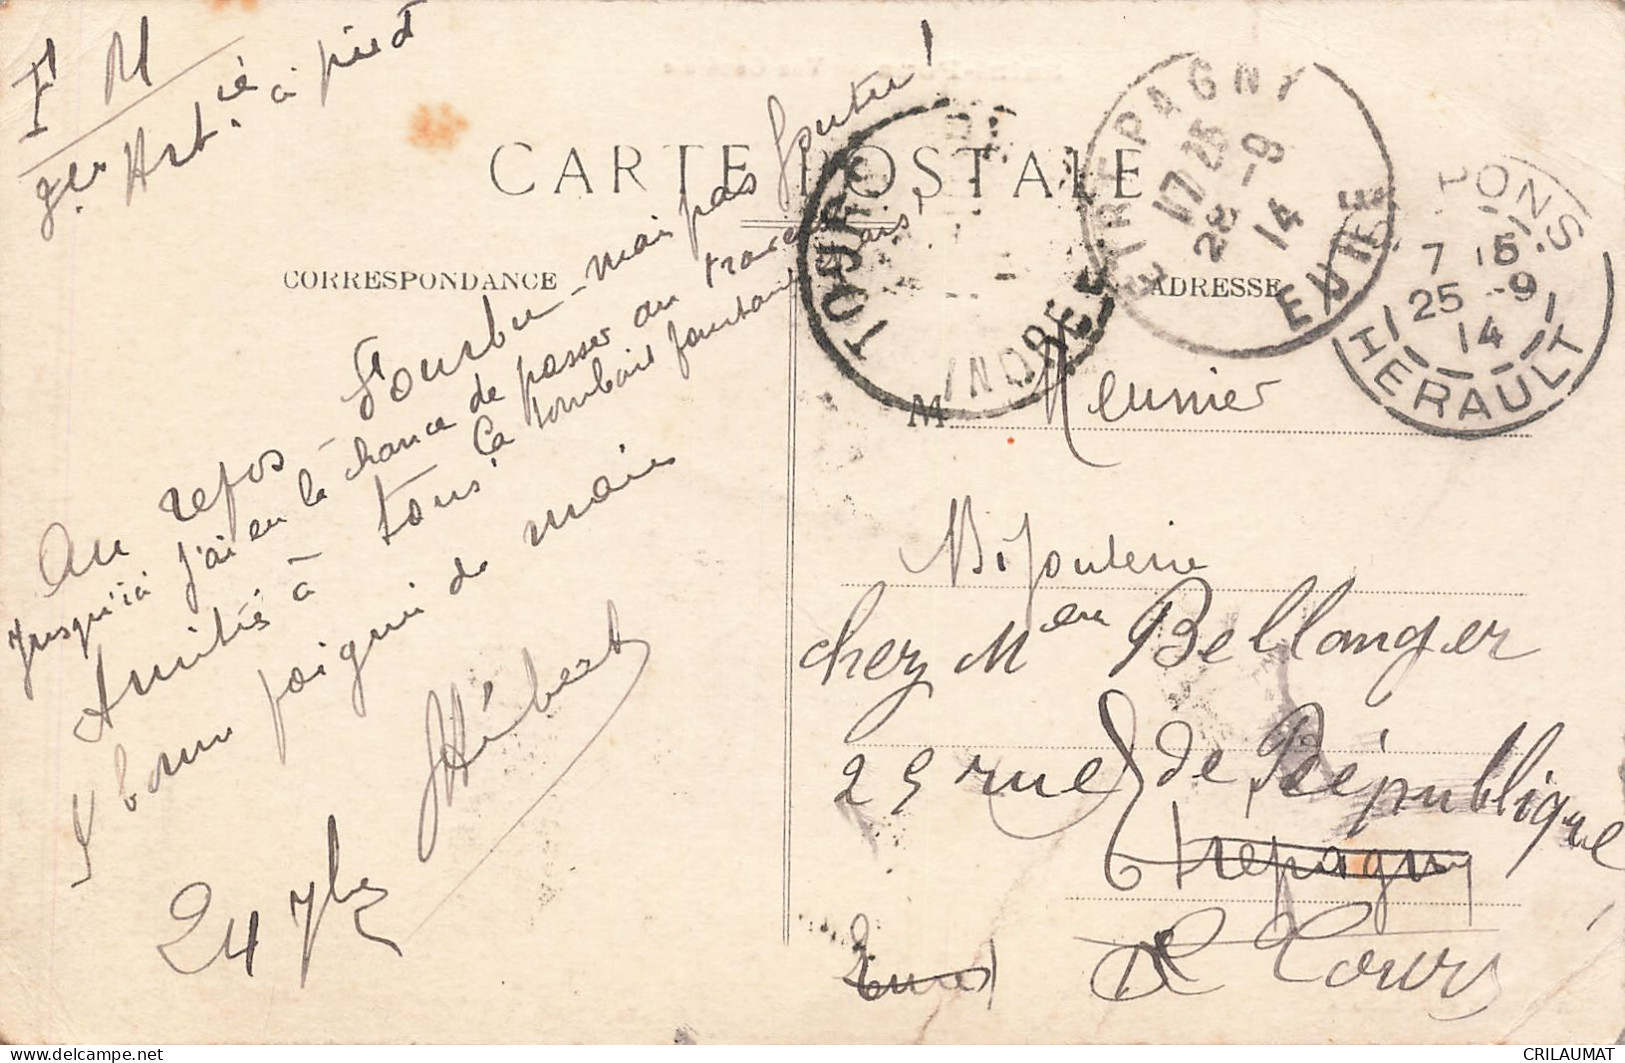 F M
Art.ie à pied
CARTE POSTALE
CORRESPONDANCE
ADRESSE
TOURS
INDRE
ETREPAGNY
17 25
28 -9
14
EURE
PONS
7 15
25 -9
14
HERAULT
Au repos - Fourbu - mais pas foutu!
Jusqu'ici j'ai eu la chance de passer au travers
Ça tombait pourtant
Amitiés à tous
& bonne poignée de main
Hébert
24 7bre
M Meunier
Bijouterie
chez M Bellanger
25 rue de République
Etrépagny
Eure
Tours
delcampe.net
CRILAUMAT